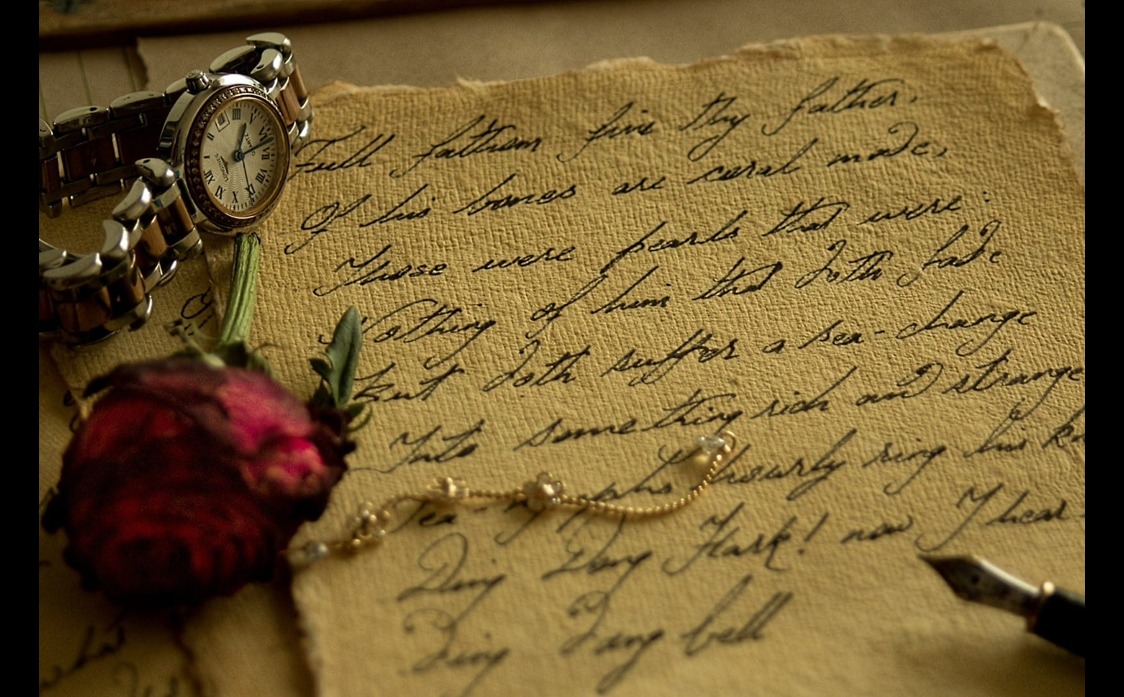 Full fathom five thy father,
Of his bones are coral made,
Those were pearls that were:
Nothing of him that doth fade
But doth suffer a sea-change
Into something rich and strange
Sea-nymphs hourly ring his
Ding Dong Hark! now I hear
Ding Dang bell